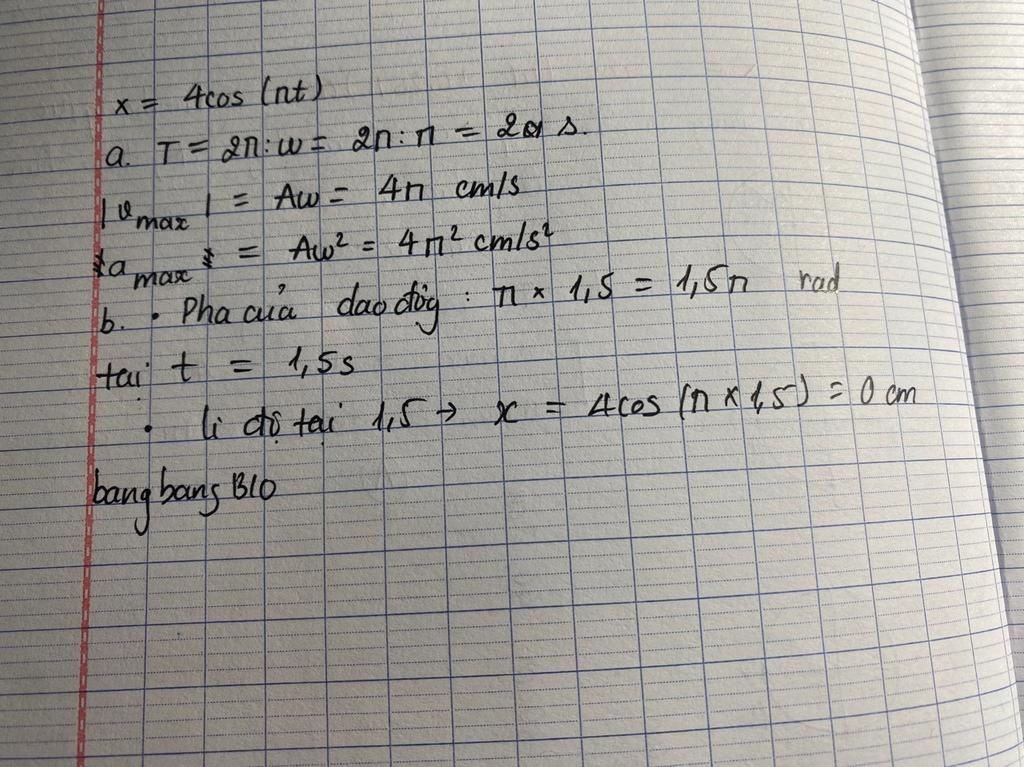 x = 4cos (πt)
a. T = 2π : ω = 2π : π = 2 s.
|v max | = Aω = 4π cm/s
a max = Aω² = 4π² cm/s²
b. • Pha của dao độg : π × 1,5 = 1,5π rad
tại t = 1,5s
• li độ tại 1,5 → x = 4cos (π × 1,5) = 0 cm
bang bang B10